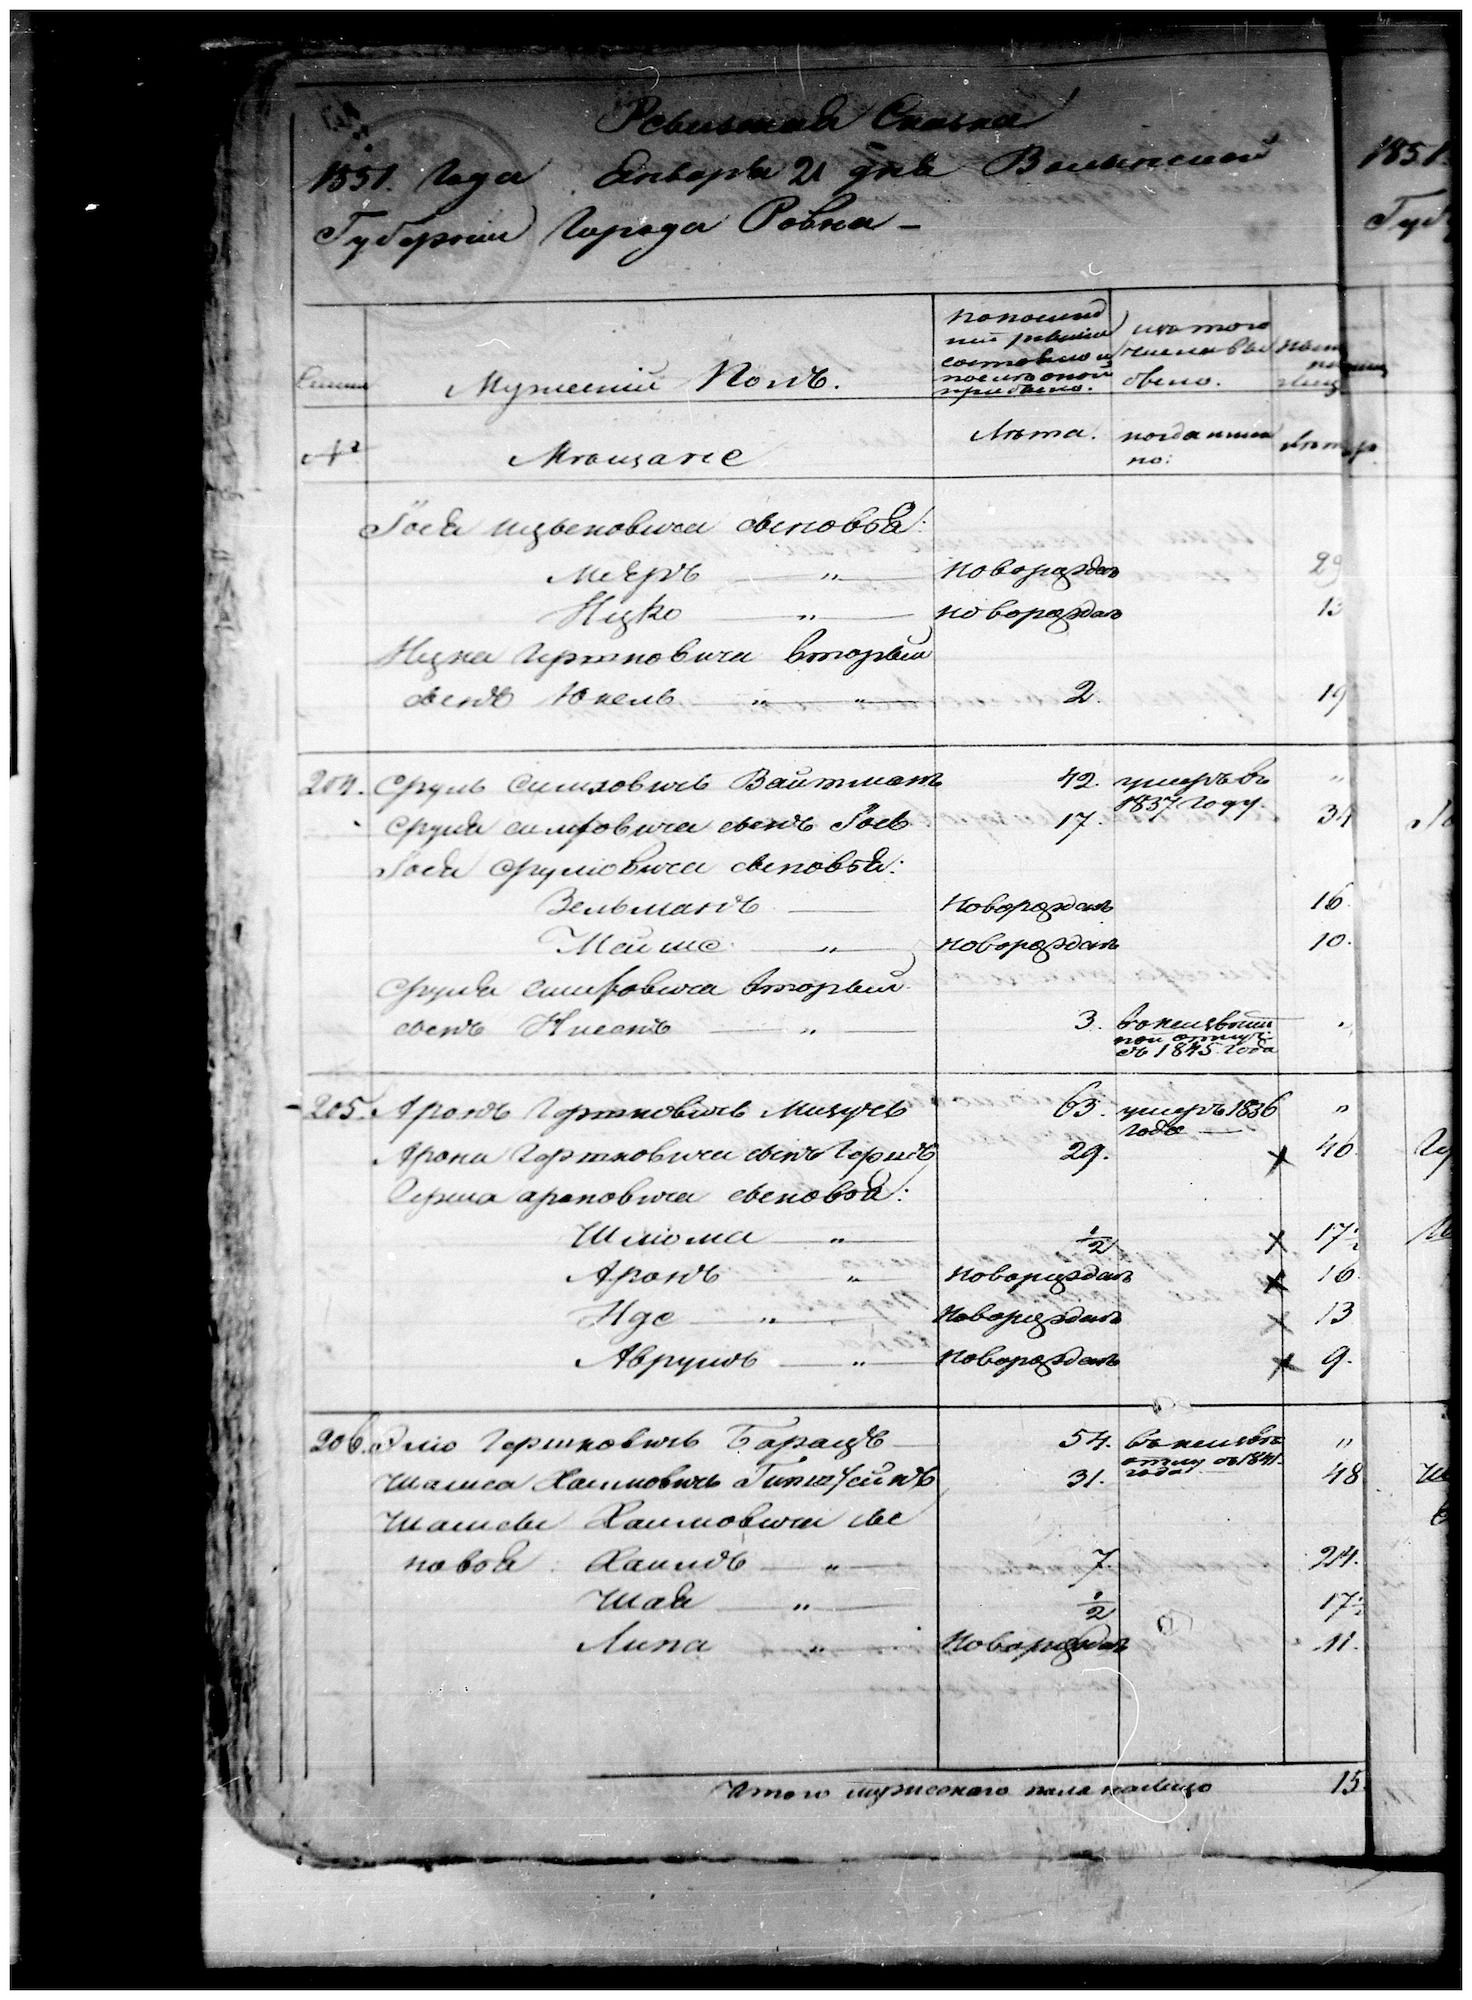 Ревизская Сказка
1851. Года Января 21 дня Волынской
Губернии Города Ровна –
1851.
Губ
Семьи
Мужеский Полъ.
по послед
ней ревизіи
состояло и
после оной
прибыло.
изъ того
числа вы
было.
№
Мѣщане
Лѣта.
когда имен
но:
Лѣта
Іося Ицковича сыновья:
Мееръ " новорожден 29
Ицко " новорожден 13
Ицка Гершковича вторый
сынъ Юкель " " 2. 19
204. Сруль Симховичъ Вайтманъ 42. умеръ въ "
1837 году.
Сруля Симховича сынъ Іось 17. 34
Іося Срулевича сыновья:
Зельманъ новорожден 16.
Мейше " новорожден 10.
Сруля Симховича вторый
сынъ Нисенъ " 3. "
съ 1845 года
205. Аронъ Гершковичъ 63. умеръ 1836 "
года
Арона Гершковича сынъ Гершъ 29. х 46
Герша Ароновича сыновья:
Шлиома " 1/2 х 17 1/2
Аронъ " новорожден х 16.
Иде " новорожден х 13
Аврумъ " новорожден х 9.
206. Элио Гершковичъ Барацъ 54. "
съ 1841
года
Шамса Хаимовичъ 31. 48
Шамсы Хаимовича сы
новья: Хаимъ " 7. 24.
Шая " 1/2 17 1/2
Липа " новорожден 11.
Итого мужескаго пола налицо 15.